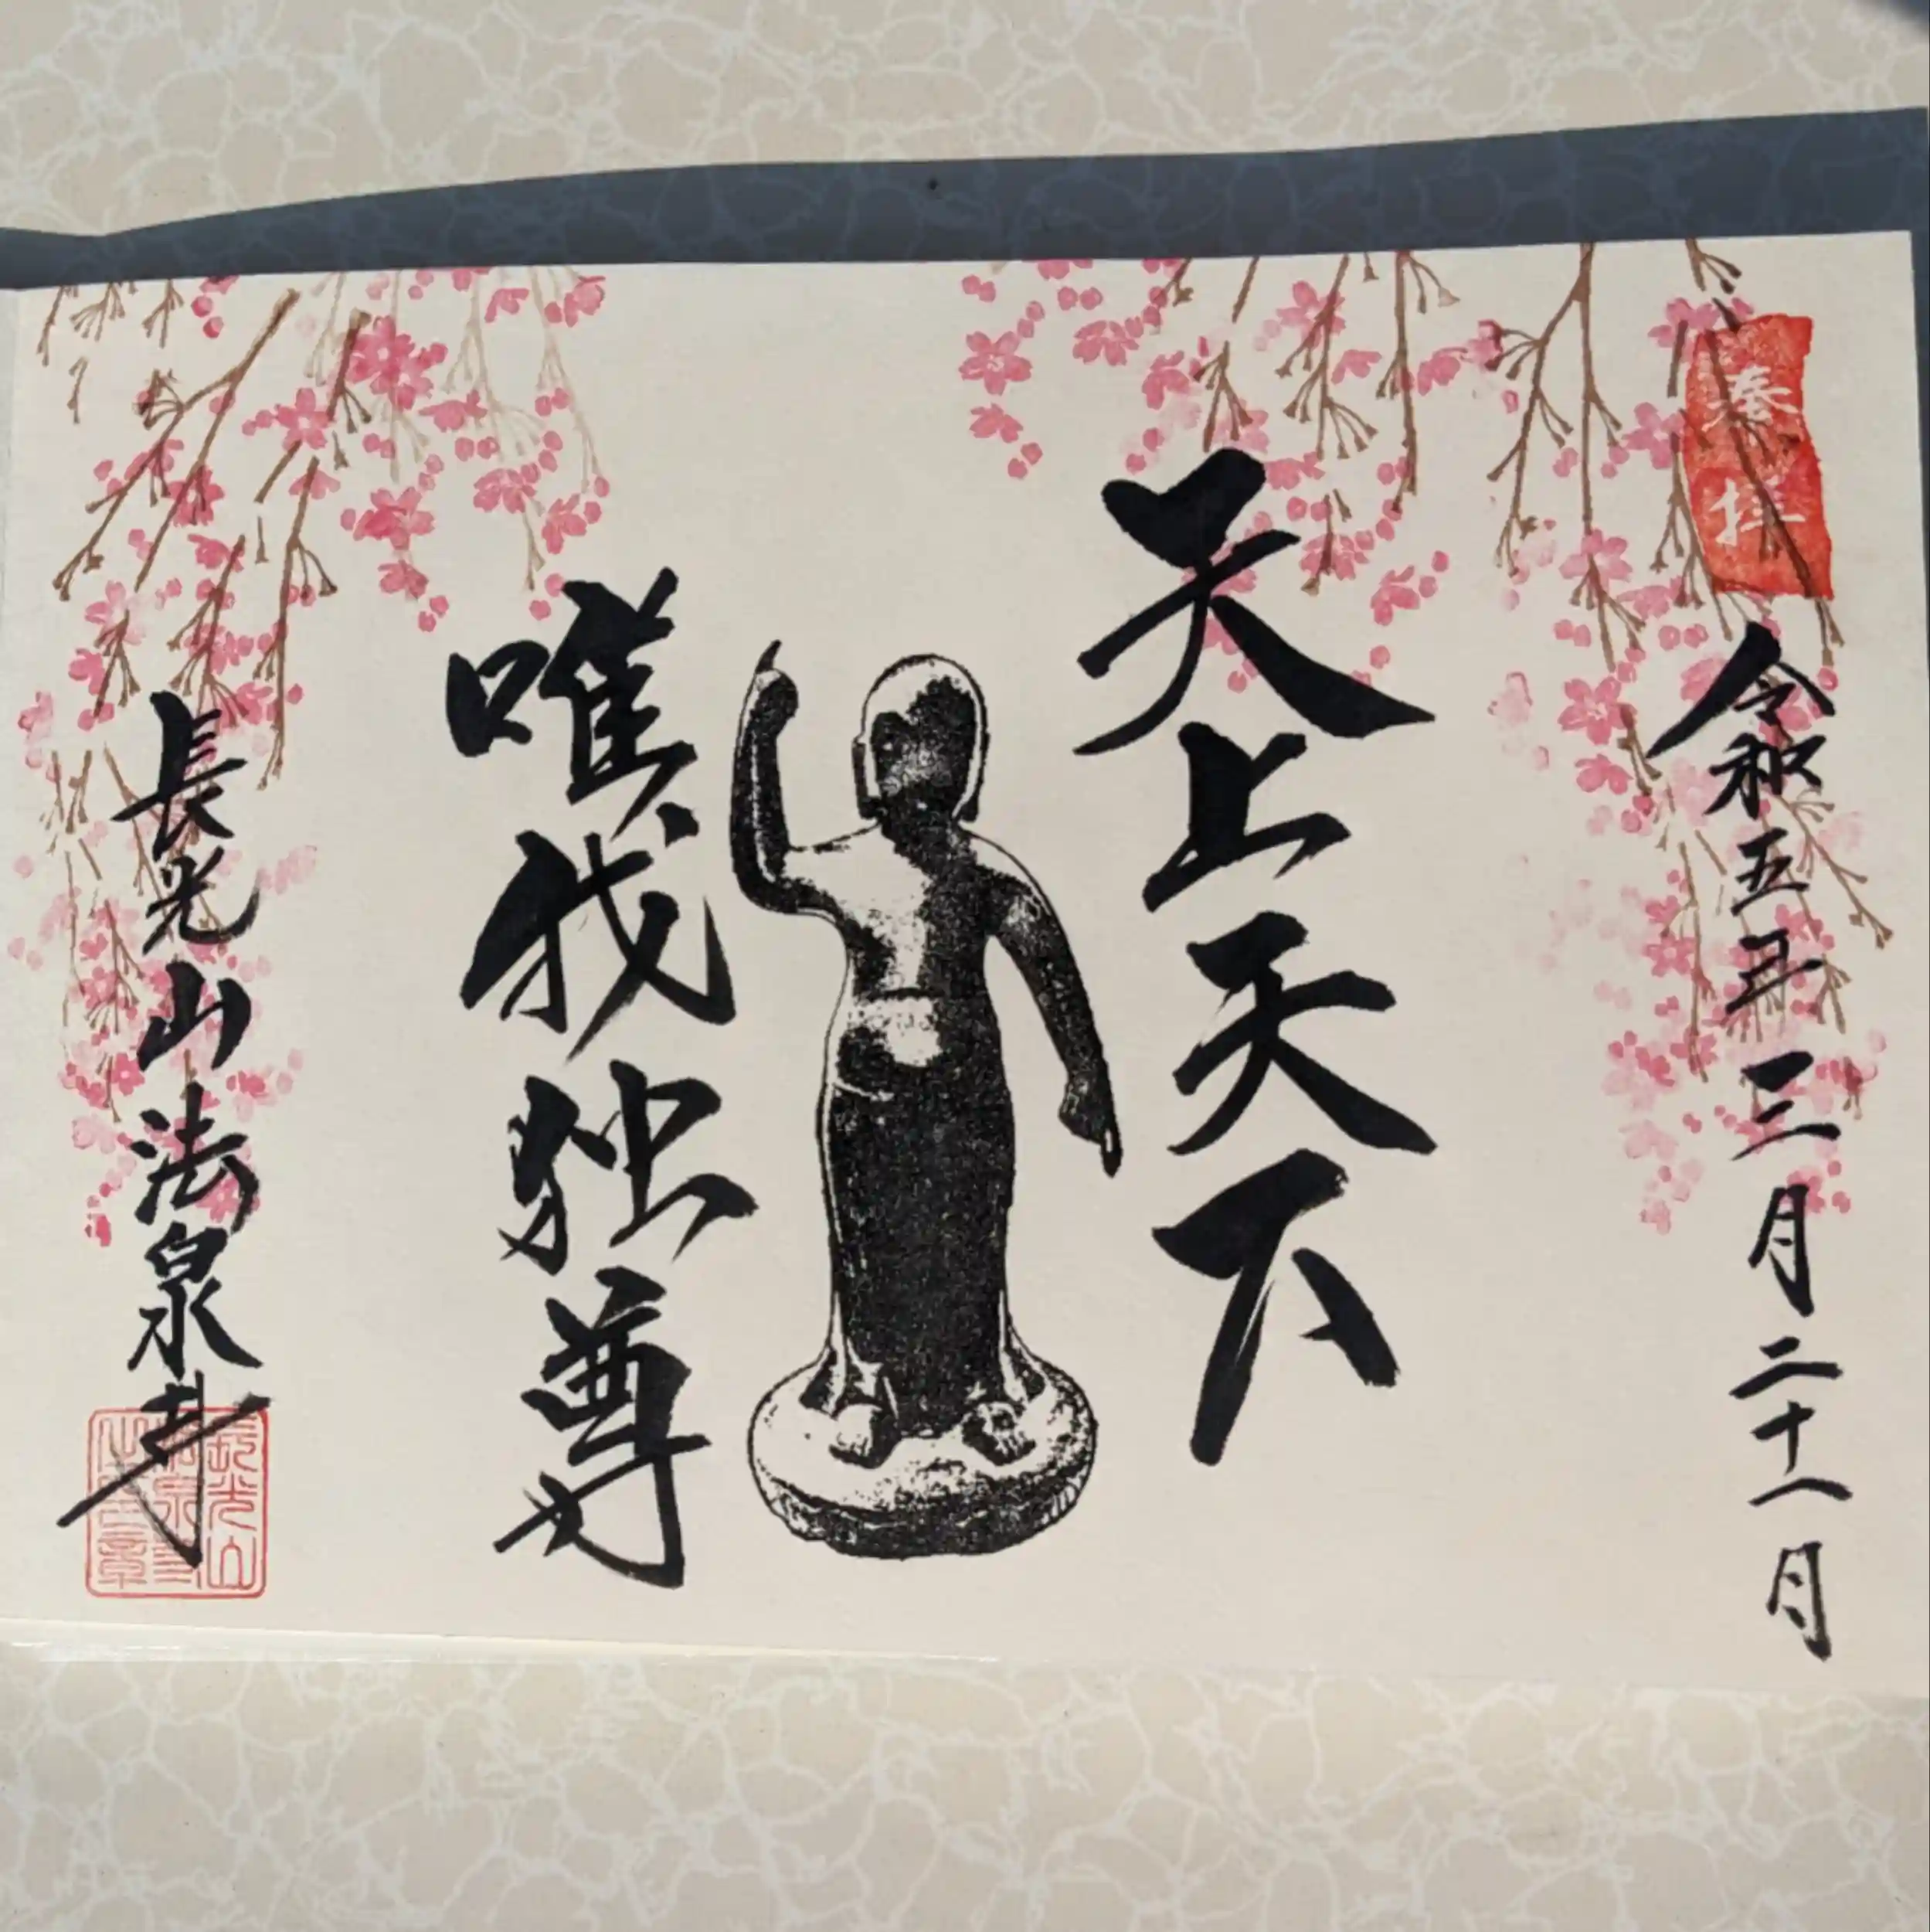 奉拝
令和五年三月二十一日
天上天下
唯我独尊
長光山法泉寺
長光山
法泉寺